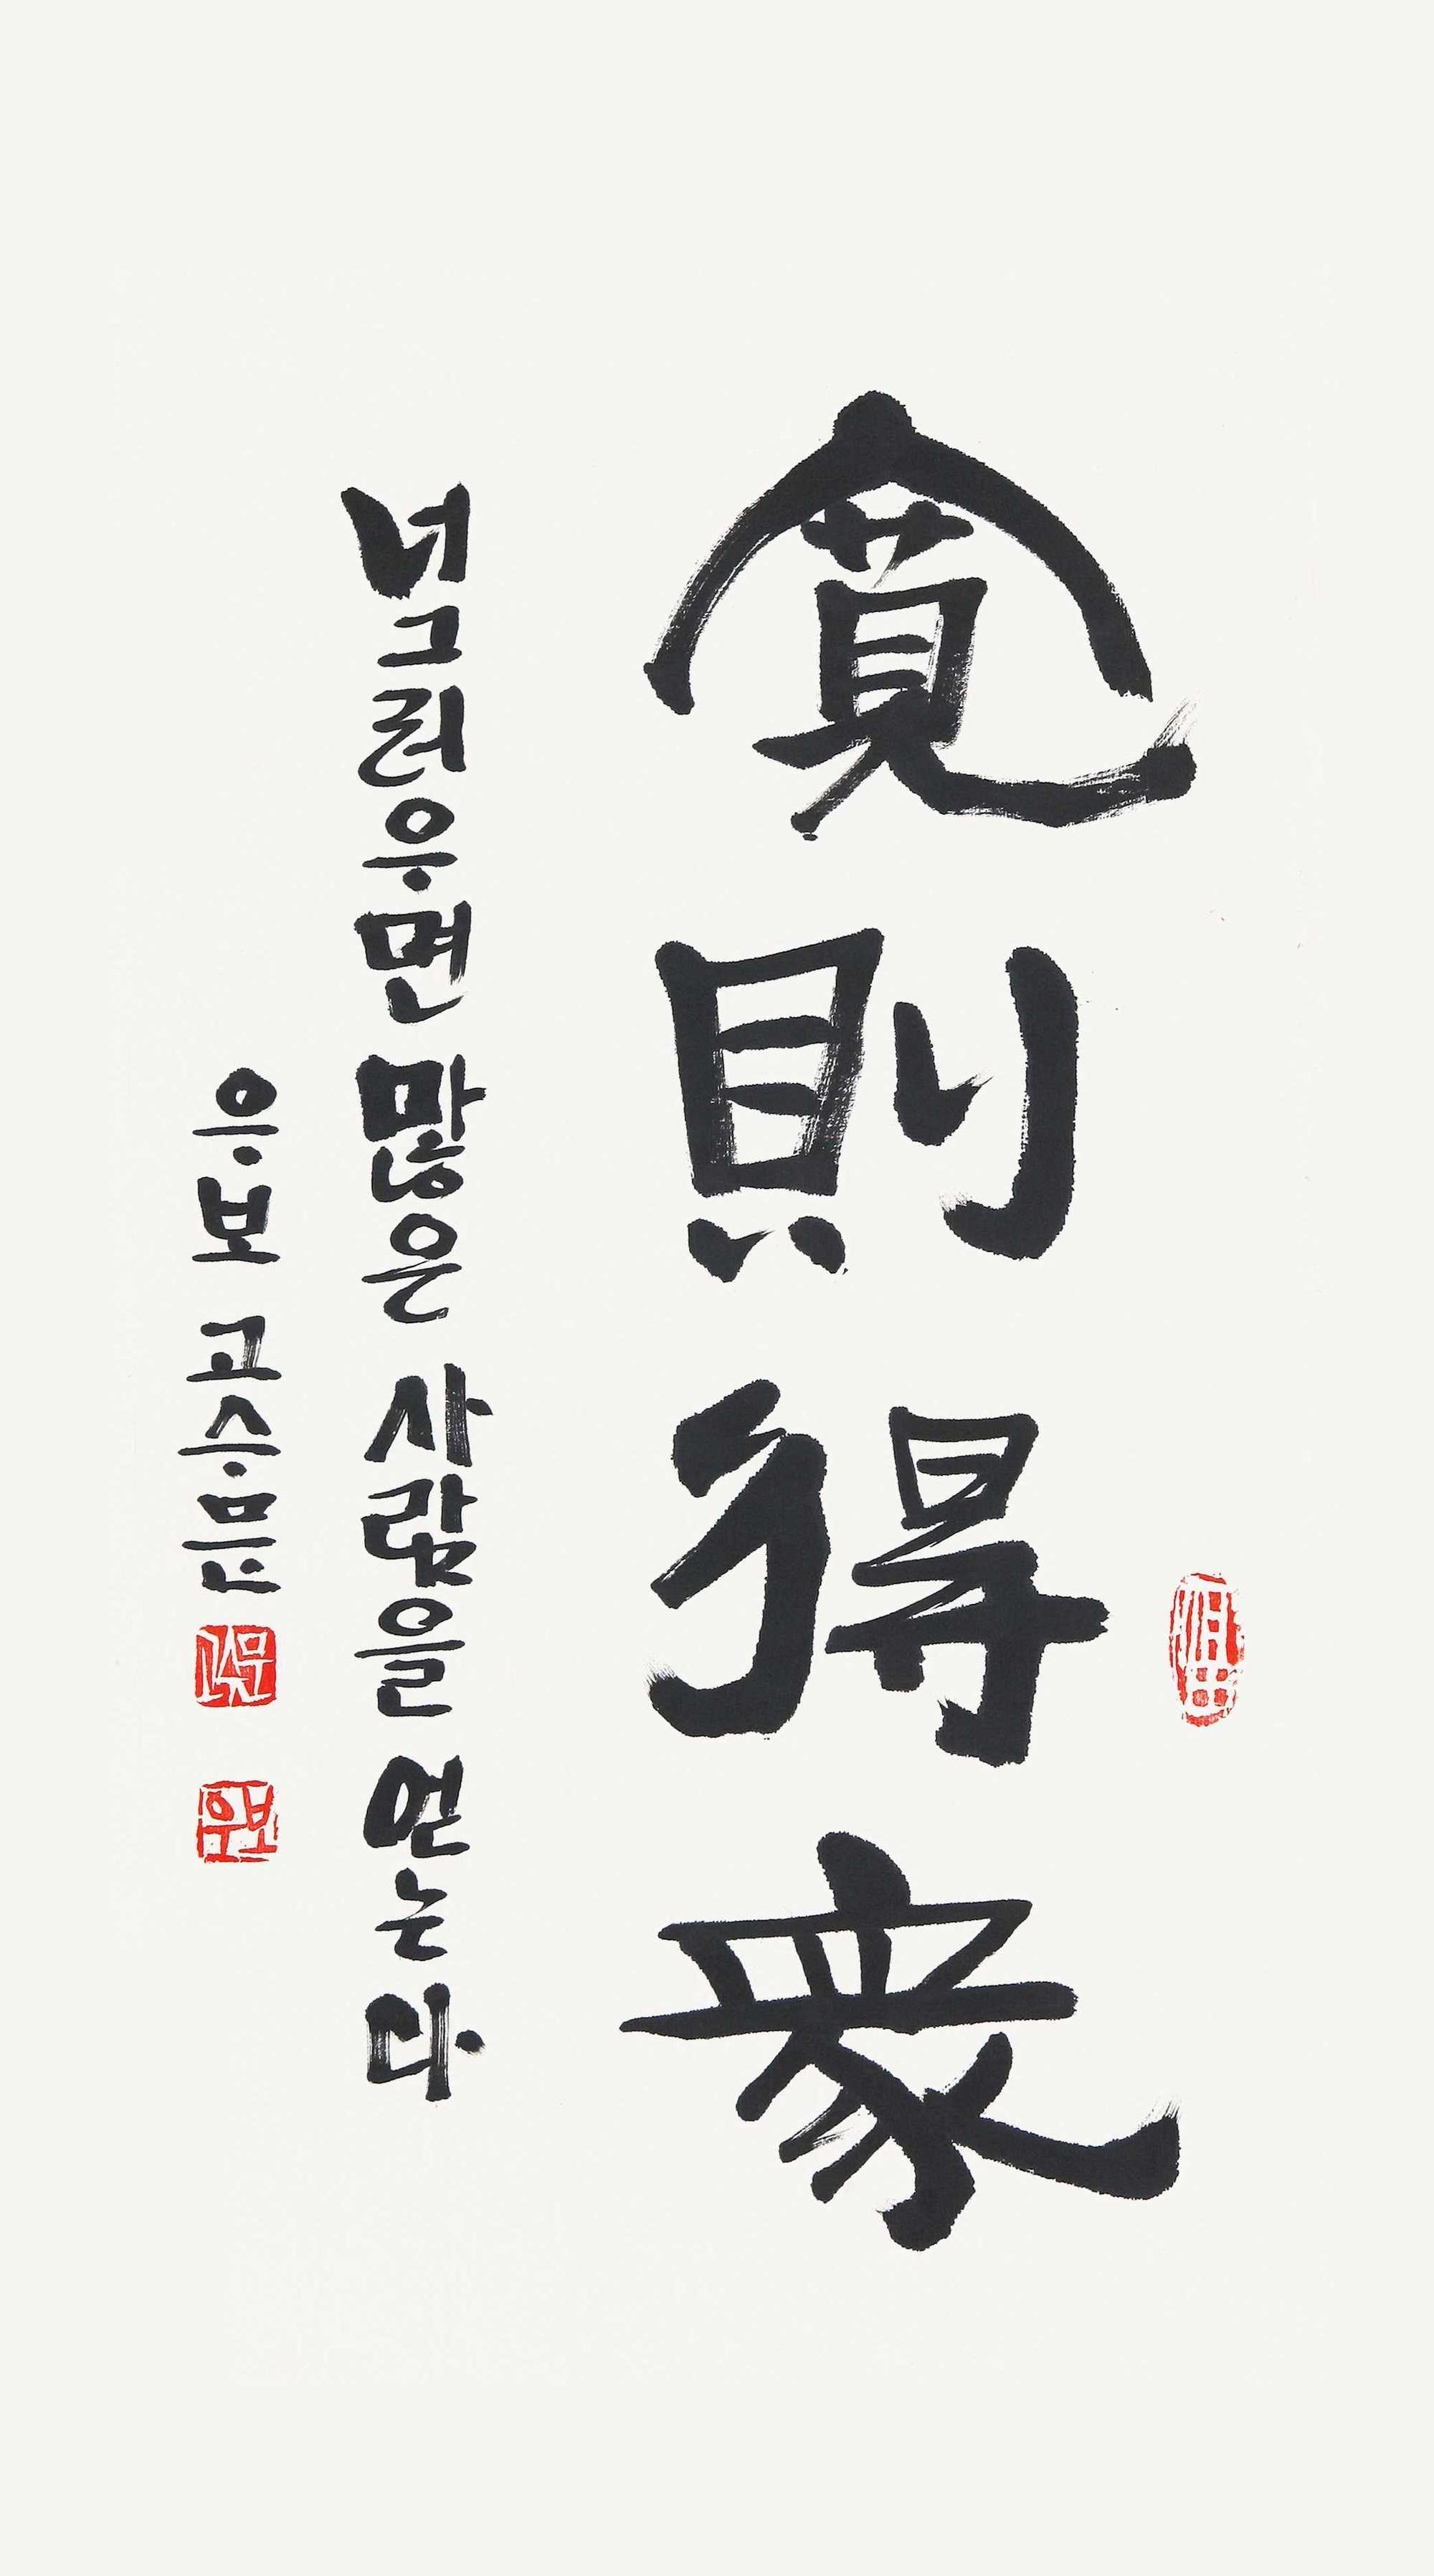 寬則得衆
너그러우면 많은 사람을 얻는다
우보 고수문